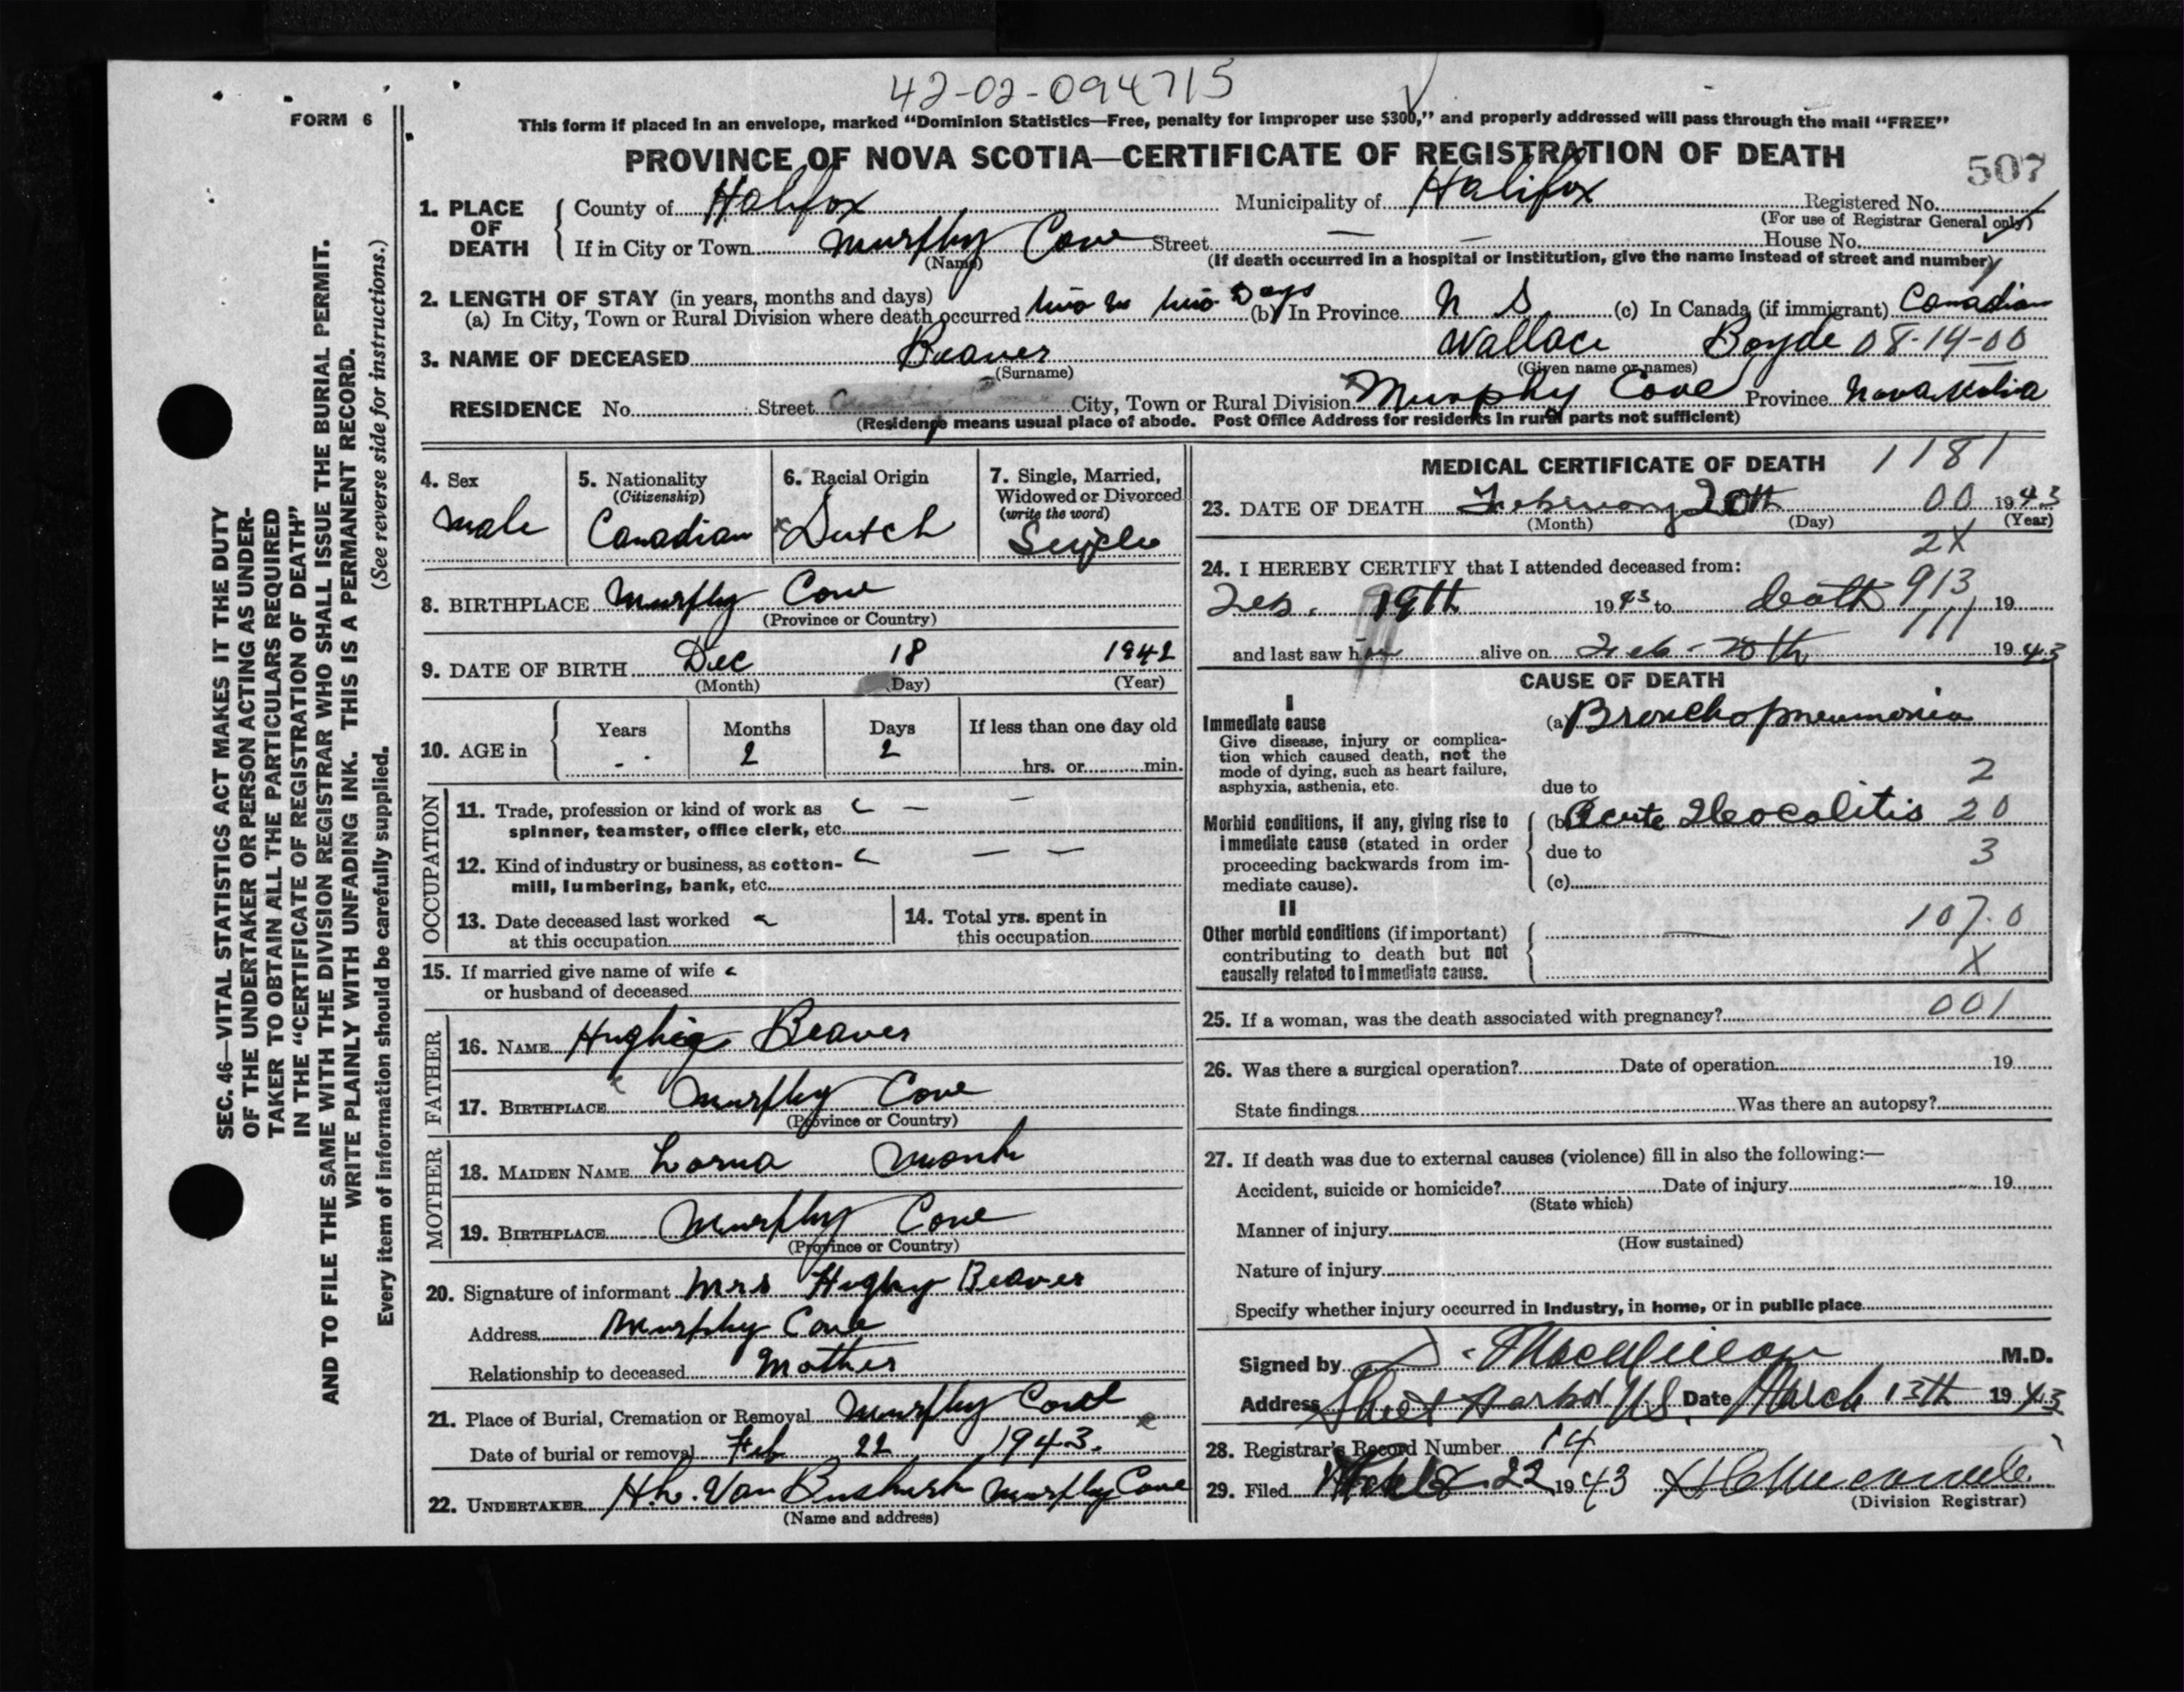 42-02-094715
FORM 6
This form if placed in an envelope, marked "Dominion Statistics—Free, penalty for improper use $300," and properly addressed will pass through the mail "FREE"
PROVINCE OF NOVA SCOTIA—CERTIFICATE OF REGISTRATION OF DEATH
507
1. PLACE OF DEATH { County of Halifax Municipality of Halifax Registered No.
(For use of Registrar General only)
If in City or Town Murphy Cove Street — — House No.
(Name) (If death occurred in a hospital or institution, give the name instead of street and number)
2. LENGTH OF STAY (in years, months and days)
(a) In City, Town or Rural Division where death occurred two m two Days (b) In Province N S (c) In Canada (if immigrant) Canadian
3. NAME OF DECEASED Beaver Wallace Boyde 08-14-00
(Surname) (Given name or names)
RESIDENCE No. Street City, Town or Rural Division Murphy Cove Province Nova Scotia
(Residence means usual place of abode. Post Office Address for residents in rural parts not sufficient)
4. Sex
Male
5. Nationality
(Citizenship)
Canadian
6. Racial Origin
Dutch
7. Single, Married,
Widowed or Divorced
(write the word)
Single
8. BIRTHPLACE Murphy Cove
(Province or Country)
9. DATE OF BIRTH Dec 18 1942
(Month) (Day) (Year)
10. AGE in { Years Months Days If less than one day old
- . 2 2 hrs. or min.
OCCUPATION
11. Trade, profession or kind of work as
spinner, teamster, office clerk, etc. — —
12. Kind of industry or business, as cotton-
mill, lumbering, bank, etc. — —
13. Date deceased last worked
at this occupation
14. Total yrs. spent in
this occupation
15. If married give name of wife
or husband of deceased
FATHER
16. NAME Hughie Beaver
17. BIRTHPLACE Murphy Cove
(Province or Country)
MOTHER
18. MAIDEN NAME Lorna Monk
19. BIRTHPLACE Murphy Cove
(Province or Country)
20. Signature of informant Mrs Hughy Beaver
Address Murphy Cove
Relationship to deceased Mother
21. Place of Burial, Cremation or Removal Murphy Cove
Date of burial or removal Feb 22 1943.
22. UNDERTAKER H.L. Van Buskirk Murphy Cove
(Name and address)
MEDICAL CERTIFICATE OF DEATH 1181
23. DATE OF DEATH February 20th 00 1943
(Month) (Day) (Year)
2X
24. I HEREBY CERTIFY that I attended deceased from:
Feb. 19th 1943 to death 913 19
111
and last saw him alive on Feb - 20th 1943
CAUSE OF DEATH
I
Immediate cause
Give disease, injury or complica-
tion which caused death, not the
mode of dying, such as heart failure,
asphyxia, asthenia, etc.
(a) Bronchopneumonia
2
due to
Morbid conditions, if any, giving rise to
immediate cause (stated in order
proceeding backwards from im-
mediate cause).
(b) Acute Ileocolitis 20
due to 3
(c)
II
Other morbid conditions (if important)
contributing to death but not
causally related to immediate cause.
— 107.0
X
25. If a woman, was the death associated with pregnancy? 001
26. Was there a surgical operation? Date of operation 19
State findings Was there an autopsy?
27. If death was due to external causes (violence) fill in also the following:—
Accident, suicide or homicide? Date of injury 19
(State which)
Manner of injury
(How sustained)
Nature of injury
Specify whether injury occurred in industry, in home, or in public place
Signed by M.D.
Address Sheet Harbor NS. Date March 13th 1943
28. Registrar's Record Number 14
29. Filed 22 1943
(Division Registrar)
SEC. 46—VITAL STATISTICS ACT MAKES IT THE DUTY
OF THE UNDERTAKER OR PERSON ACTING AS UNDER-
TAKER TO OBTAIN ALL THE PARTICULARS REQUIRED
IN THE "CERTIFICATE OF REGISTRATION OF DEATH"
AND TO FILE THE SAME WITH THE DIVISION REGISTRAR WHO SHALL ISSUE THE BURIAL PERMIT.
WRITE PLAINLY WITH UNFADING INK. THIS IS A PERMANENT RECORD.
Every item of information should be carefully supplied. (See reverse side for instructions.)